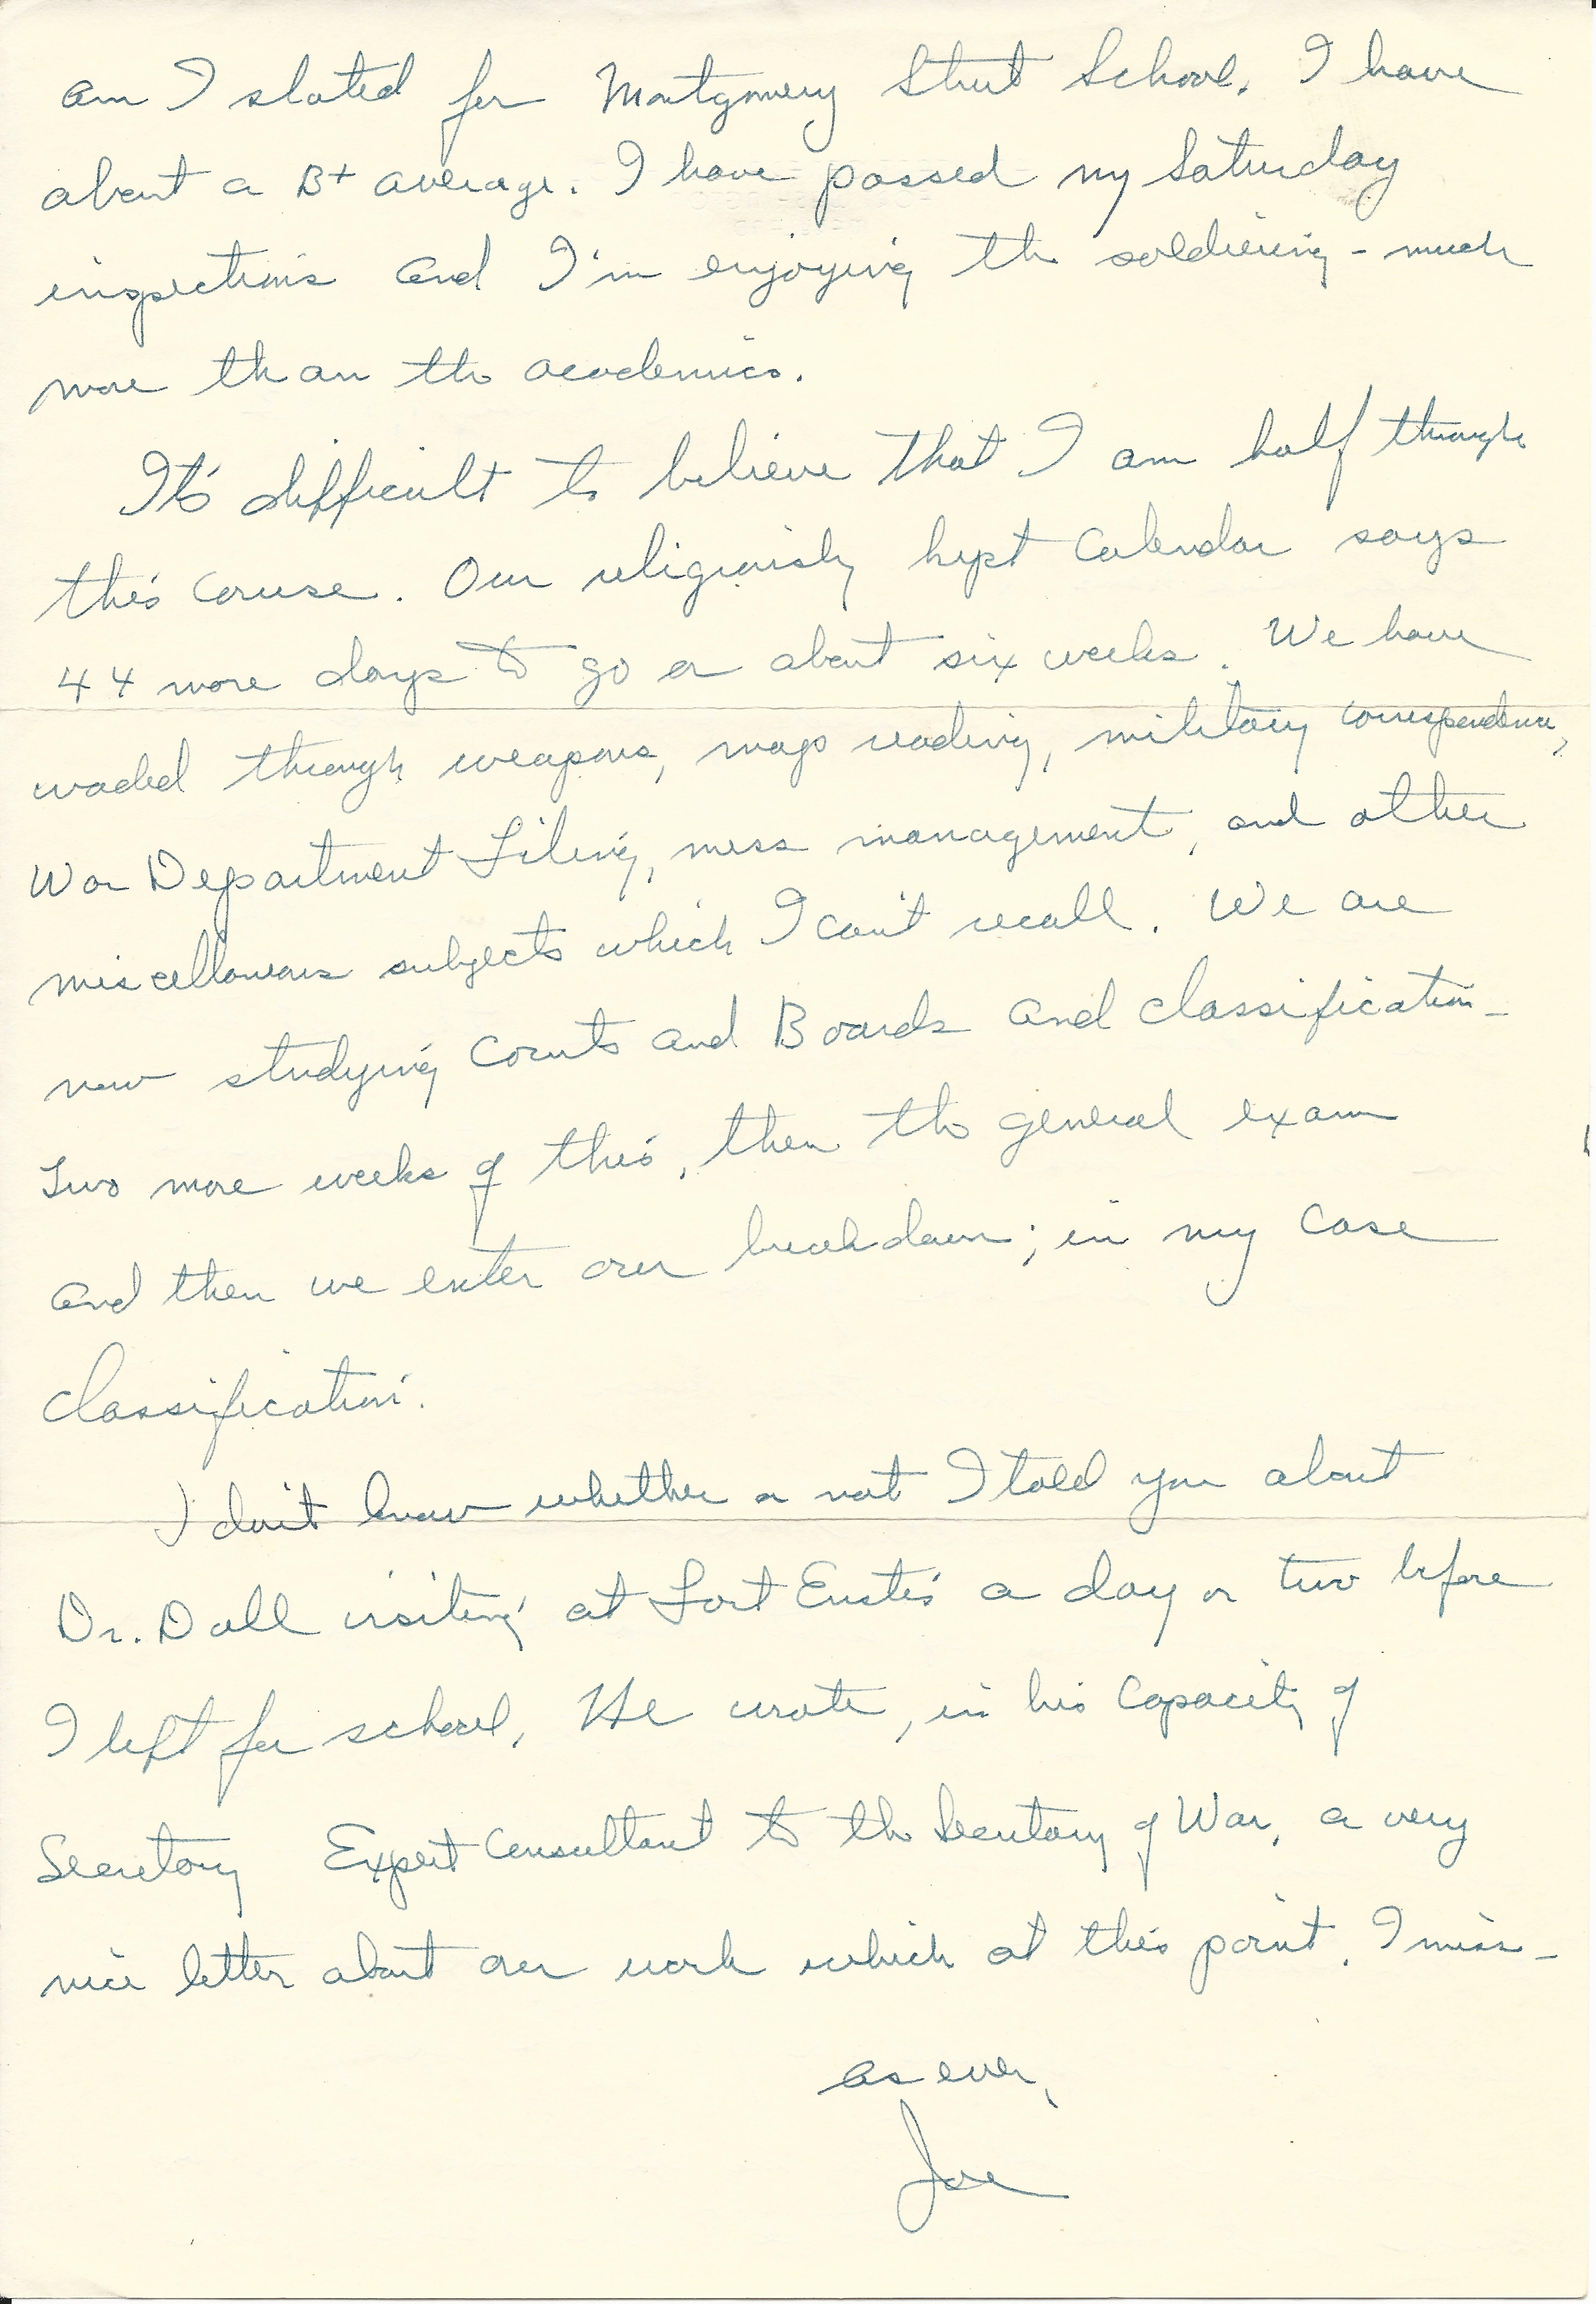 am I slated for Montgomery Street School. I have
about a B+ average. I have passed my Saturday
inspections and I'm enjoying the soldiering - much
more than the academics.
It's difficult to believe that I am half through
this course. Our religiously kept calendar says
44 more days to go or about six weeks. We have
waded through weapons, map reading, military correspondence,
War Department Filing, mess management, and other
miscellaneous subjects which I can't recall. We are
now studying Courts and Boards and classification -
Two more weeks of this, then the general exam
and then we enter our breakdown; in my case
classification.
I don't know whether or not I told you about
Dr. Doll visiting at Fort Eustis a day or two before
I left for school. He wrote, in his capacity of
Secretary Expert Consultant to the Secretary of War, a very
nice letter about our work which at this point, I miss -
As ever,
Joe